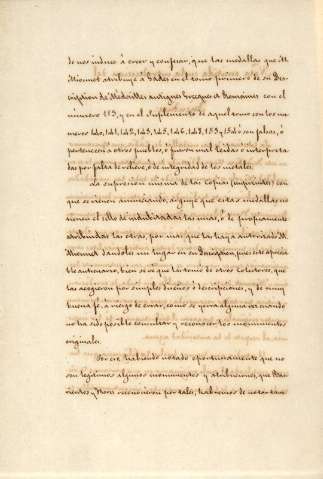 de nos induce á creer y confesar, que las medallas que M.
Mionnet atribuye á Gades en el tomo primero de su Des-
cription de Médailles antiques Grecques et Romaines con el
número 113, y en el Suplemento de aquel tomo con los nu-
meros 140, 141, 142, 143, 145, 146, 147, 153 y 154 ó son falsas, ó
pertenecen á otros pueblos, ó fueron mal leidas é interpreta-
das por falta de relieve, ó de integridad de los metales.
La supresion misma de las copias con
que se vienen anunciando, arguye que estas medallas no
tienen el sello de indubitadas las unas, ó de propiamente
atribuidas las otras, por mas que las haya autorizado M.
Mionnet dandoles un lugar en su Description, pues este aprecia-
ble anticuario, bien se vé que las tomó de otros Colectores, que
las acogieron por simples diseños ó descripciones, y de muy
buena fé, á riesgo de errar, como se yerra alguna vez cuando
no ha sido posible consultar y reconocer los monumentos
originales.
Por eso habiendo notado oportunamente que no
son legitimos algunos monumentos y atribuciones, que Ba-
rrientos y Flores reconocieron por tales, habremos de notar tam-